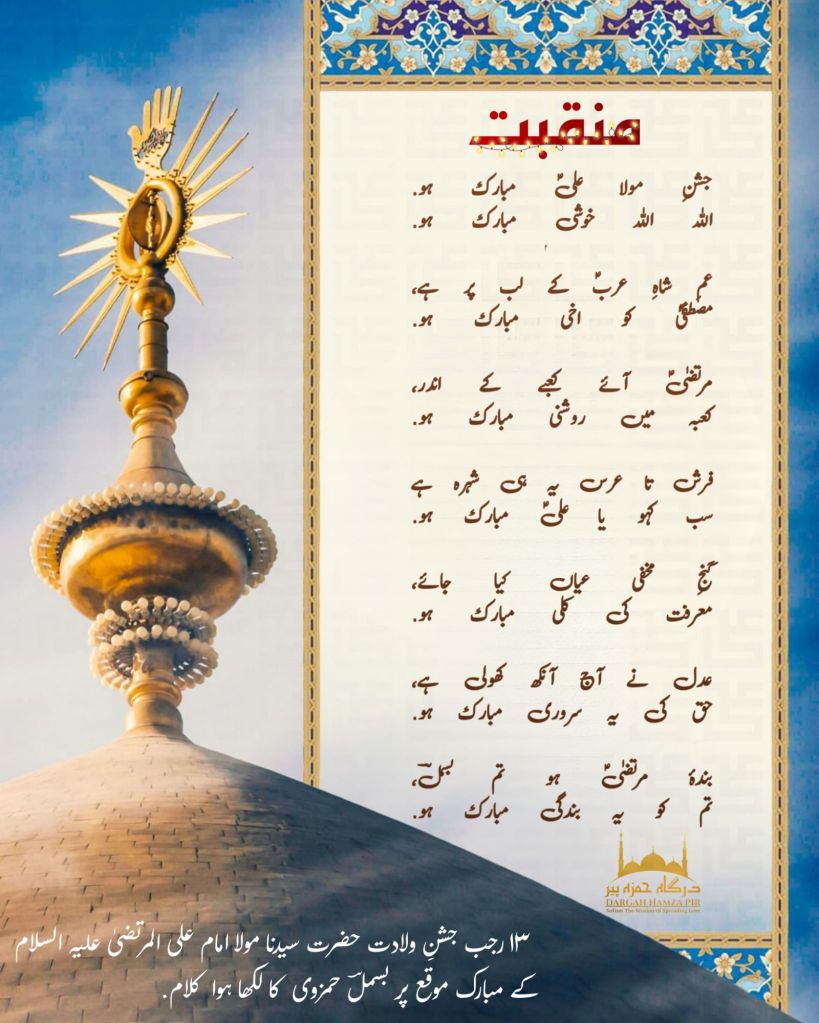 منقبت
جشنِ مولا علیؑ مبارک ہو.
اللہ اللہ خوشی مبارک ہو.
عمِ شاہِ عربؐ کے لب پر ہے،
مصطفیٰؐ کو اخی مبارک ہو.
مرتضیٰؑ آئے کعبے کے اندر،
کعبہ میں روشنی مبارک ہو.
فرش تا عرس یہ ہی شہرہ ہے
سب کہو یا علیؑ مبارک ہو.
گنجِ مخفی عیاں کیا جائے،
معرفت کی کلی مبارک ہو.
عدل نے آج آنکھ کھولی ہے،
حق کی یہ سروری مبارک ہو.
بندۂ مرتضیٰؑ ہو تم بسملؔ،
تم کو یہ بندگی مبارک ہو.
درگاہ حمزہ پیر
DARGAH HAMZA PIR
Sufism The Mission Of Spreading Love
١٣ رجب جشنِ ولادت حضرت سیدنا مولا امام علی المرتضیٰ علیہ السلام
کے مبارک موقع پر بسملؔ حمزوی کا لکھا ہوا کلام.